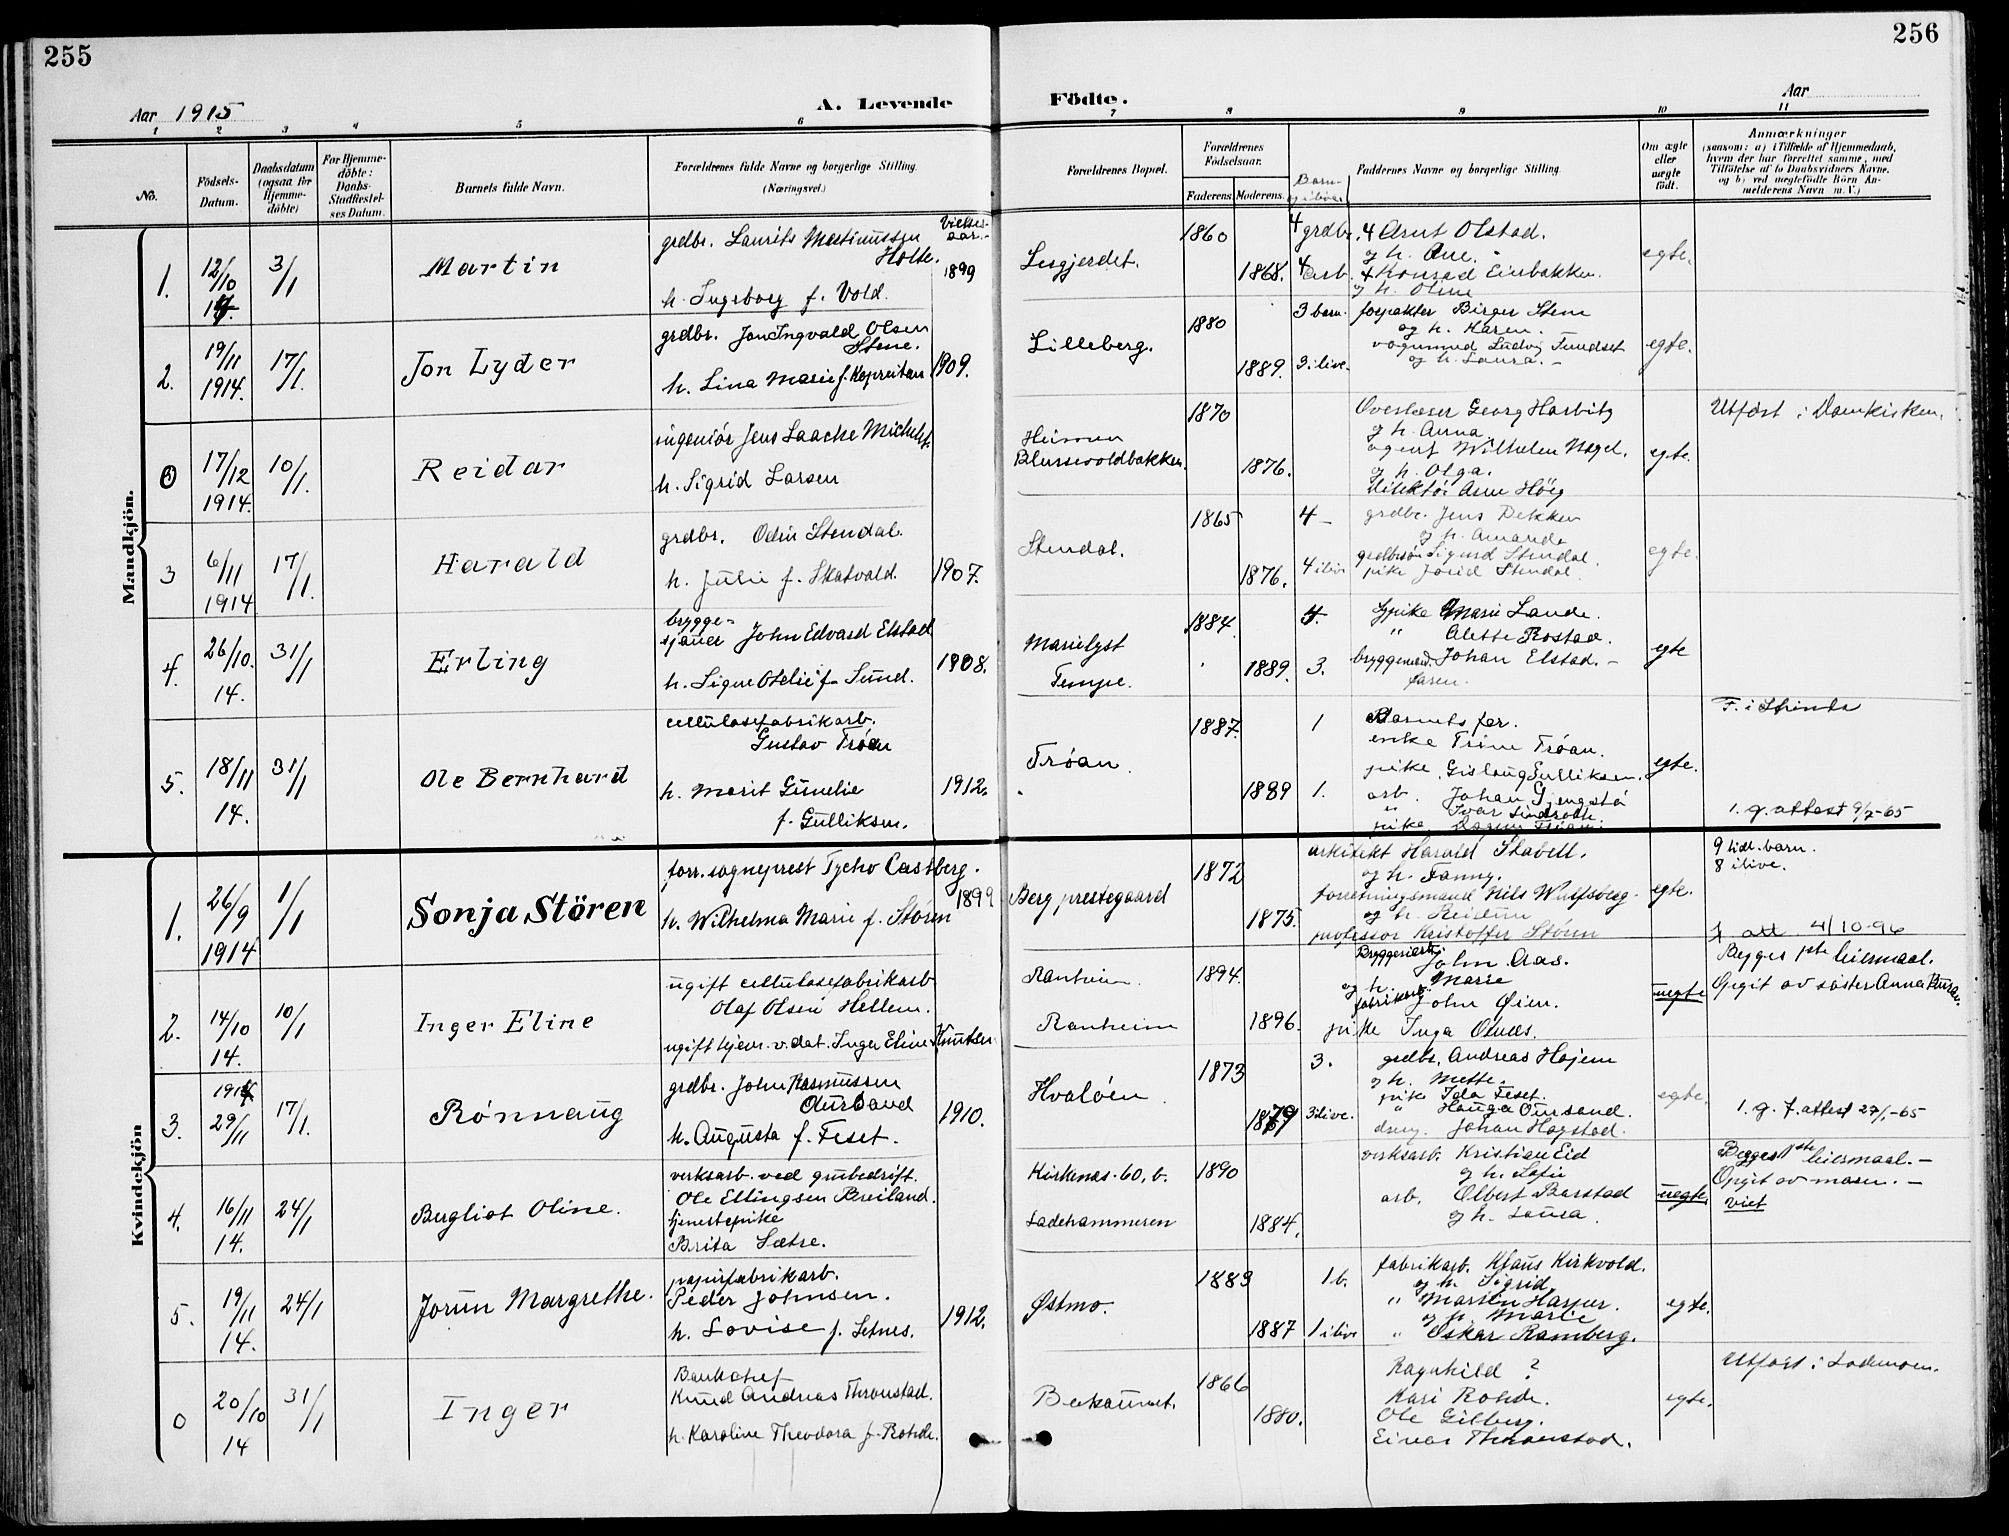 255
256
Aar 1915
A. Levende
Födte.
Aar
1 2 3 4 5 6 7 8 9 10 11
No.
Födsels-Datum.
Daabsdatum (ogsaa for Hjemme-döbte)
For Hjemme-döbte: Daabs-Stadfæstel-ses Datum.
Barnets fulde Navn.
Forældrenes fulde Navne og borgerlige Stilling.
(Næringsvei.)
Vielses-aar.
Forældrenes Bopæl.
Forældrenes Födselsaar.
Faderens. Moderens.
Barn i live
Faddernes Navne og borgerlige Stilling
Om ægte eller uægte födt.
Anmærkninger
(saasom: a) i Tilfælde af Hjemmedaab,
hvem der har forrettet samme, med
Tilföielse af to Daabsvidners Navne,
og b) ved uægtefödte Börn An-
melderens Navn m. V.)
Mandkjön.
1. 12/10 14. 3/1 Martin
grdbr. Laurits Martinussen
Holte.
h. Ingeborg f. Vold.
1899
Lesgjerdet.
1860 1868.
4 grdbr. 4 Arnt Olstad.
og h. Ane.
4 arb. 4 Konrad Einbakken.
og h. Oline
egte.
2. 19/11 1914. 17/1. Jon Lyder
grdbr. Jon Ingvald Olsen
Stene.
h. Lina Marie f. Kopreitan 1909.
Lilleberg.
1880 1889.
3 barn. forpakter Birger Stene
og h. Karen.
vognmand Ludvig Tundset
3 i live. og h. Laura.
egte.
0 17/12 1914. 10/1. Reidar
ingeniör Jens Laache Michels
h. Sigrid Larsen
Heimen
Blussevoldbakken.
1870 1876.
Overlærer Georg Harbitz
og h. Anna.
agent Wilhelm Nagel.
og h. Olga.
Direktör Arne Höeg
egte.
Utfört i Domkirken.
3 6/11 1914. 17/1. Harald
grdbr. Odin Stendal.
h. Julie f. Skatvold. 1907.
Stendal.
1865 1876.
4 - grdbr. Jens Rekken
og h. Amanda
4 i live grdbrsön Sigurd Stendal.
pike Jorid Stendal.
egte.
4. 26/10. 14. 31/1 Erling
brygge-
sjauer John Edvard Elstad
h. Signe Otelie f. Sund. 1908.
Marielyst
Tempe.
1884. 1889.
4. pike Marie Lande.
" Alette Rostad.
3. bryggemed. Johan Elstad. -
faren.
egte
5. 18/11 14. 31/1 Ole Bernhard
cellulosefabrikarb.
Gustav Tröan
h. Marit Gunelie 1912.
f. Gulliksen.
Tröan.
1887. 1889
1 Barnets far.
enke Trine Tröan.
pike Gislaug Gulliksen.
1. arb. Johan Gjengstö
" Ivar Lindseth.
pike Dagny Tröan.
egte.
F. i Strinda
1. g. attest 9/7-65
Kvindekjön
1. 26/9 1914 1/1 Sonja Stören
forr. sogneprest Tycho Castberg.
h. Wilhelma Marie f. Stören 1899
Berg prestegaard
1872 1875.
arkitekt Harald Stabell.
og h. Fanny.
forretningsmand Nils Wulfsberg.
og h. Reidun
professor Kristoffer Stören
egte.
9 lidl. barn.
8 i live.
f. att. 4/10-96
2. 14/10 14. 10/1 Inger Eline
ugift cellulosefabrikarb.
Olaf Olsen Hellem.
ugift tjen. v. dat. Inger Eline Knutsen
Ranheim
Ranheim
1894. 1896.
Bryggeriarb. John Aas.
og h. Marie
fabrikarb. John Øien.
pike Inga Olnes.
uegte
Begges 1ste leiermaal.
Opgit av söster Anna
3. 1914 29/11 17/1. Rønnaug
grdbr. John Rasmussen
Oursand
h. Augusta f. Feset. 1910.
Hvalöen
1873 1879
3. grdbr. Andreas Hojem
og h. Mette.
pike Ida Feset.
3 i live. " Hauga Oursand.
dreng. Johan Hogstad.
egte.
1. g. f. attest 27/1-65
4. 16/11 14. 24/1 Bergliot Oline.
verksarb. ved grubedrift.
Ole Ellingsen Breiland.
tjenestepike
Brita Sætre.
Kirkenæs. 60. b.
Ladehammeren
1890 1884.
verksarb. Kristian Eid
og h. Sofie
arb. Albert Barstad
og h. Laura.
uegte
Begges 1ste leiermaal. -
Opgit av moren. -
viet
5. 19/11 14. 24/1 Jorun Margrethe.
papirfabrikarb.
Peder Johnsen.
h. Lovise f. Setnes. 1912.
Østmo.
1883 1887
1 b. fabrikarb. Klaus Kirkvold.
og h. Sigrid.
" Martin Harper.
og h. Marie
1 i live " Oskar Ramberg.
egte.
0 20/10 14 31/1 Inger
Bankchef
Knud Andreas Thronstad.
h. Karoline Theodora f. Rohde.
Bakaunet.
1866 1880.
Ragnhild ?
Kari Rohde.
Ole Gilberg.
Einar Thronstad.
egte.
Utfört i Lademoen.